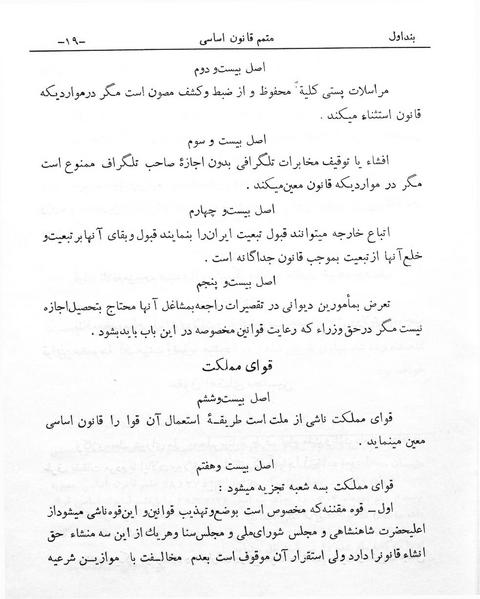 بند اول متمم قانون اساسی -۱۹-
اصل بیست و دوم
مراسلات پستی کلیةً محفوظ و از ضبط و کشف مصون است مگر در مواردیکه
قانون استثناء میکند .
اصل بیست و سوم
افشاء یا توقیف مخابرات تلگرافی بدون اجازهٔ صاحب تلگراف ممنوع است
مگر در مواردیکه قانون معین میکند .
اصل بیست و چهارم
اتباع خارجه میتوانند قبول تبعیت ایران را بنمایند قبول و بقای آنها بر تبعیت و
خلع آنها از تبعیت بموجب قانون جداگانه است .
اصل بیست و پنجم
تعرض بمأمورین دیوانی در تقصیرات راجعه بمشاغل آنها محتاج بتحصیل اجازه
نیست مگر در حق وزراء که رعایت قوانین مخصوصه در این باب باید بشود .
قوای مملکت
اصل بیست و ششم
قوای مملکت ناشی از ملت است طریقهٔ استعمال آن قوا را قانون اساسی
معین مینماید .
اصل بیست و هفتم
قوای مملکت بسه شعبه تجزیه میشود :
اول ـ قوه مقننه که مخصوص است بوضع و تهذیب قوانین و این قوه ناشی میشود از
اعلیحضرت شاهنشاهی و مجلس شورای ملی و مجلس سنا و هریك از این سه منشاء حق
انشاء قانون را دارد ولی استقرار آن موقوف است بعدم مخالفت با موازین شرعیه